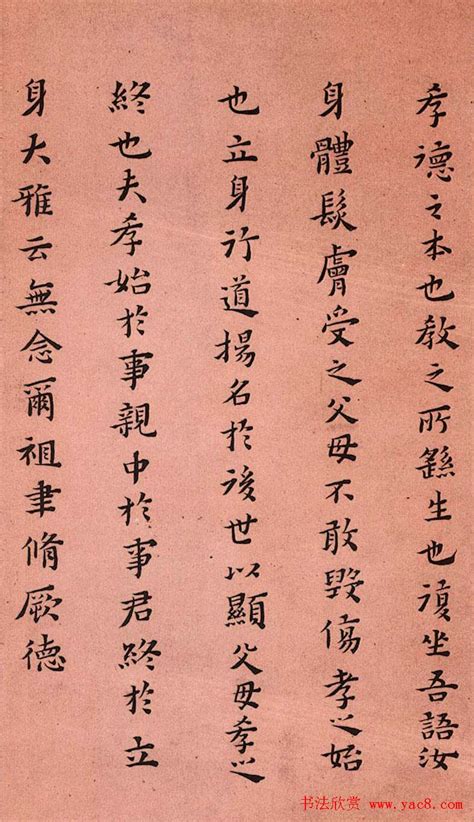 孝德之本也教之所繇生也復坐吾語汝
身體髮膚受之父母不敢毀傷孝之始
也立身行道揚名於後世以顯父母孝之
終也夫孝始於事親中於事君終於立
身大雅云無念爾祖聿脩厥德
书法欣赏 www.yac8.com